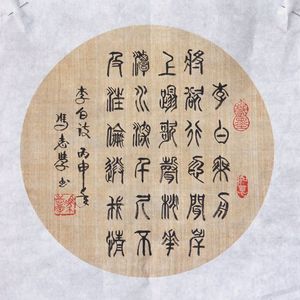 李白乘舟
將欲行忽聞岸
上踏歌聲桃華
潭水深千尺不
及汪倫送我情
李白詩 丙申
馮志學书